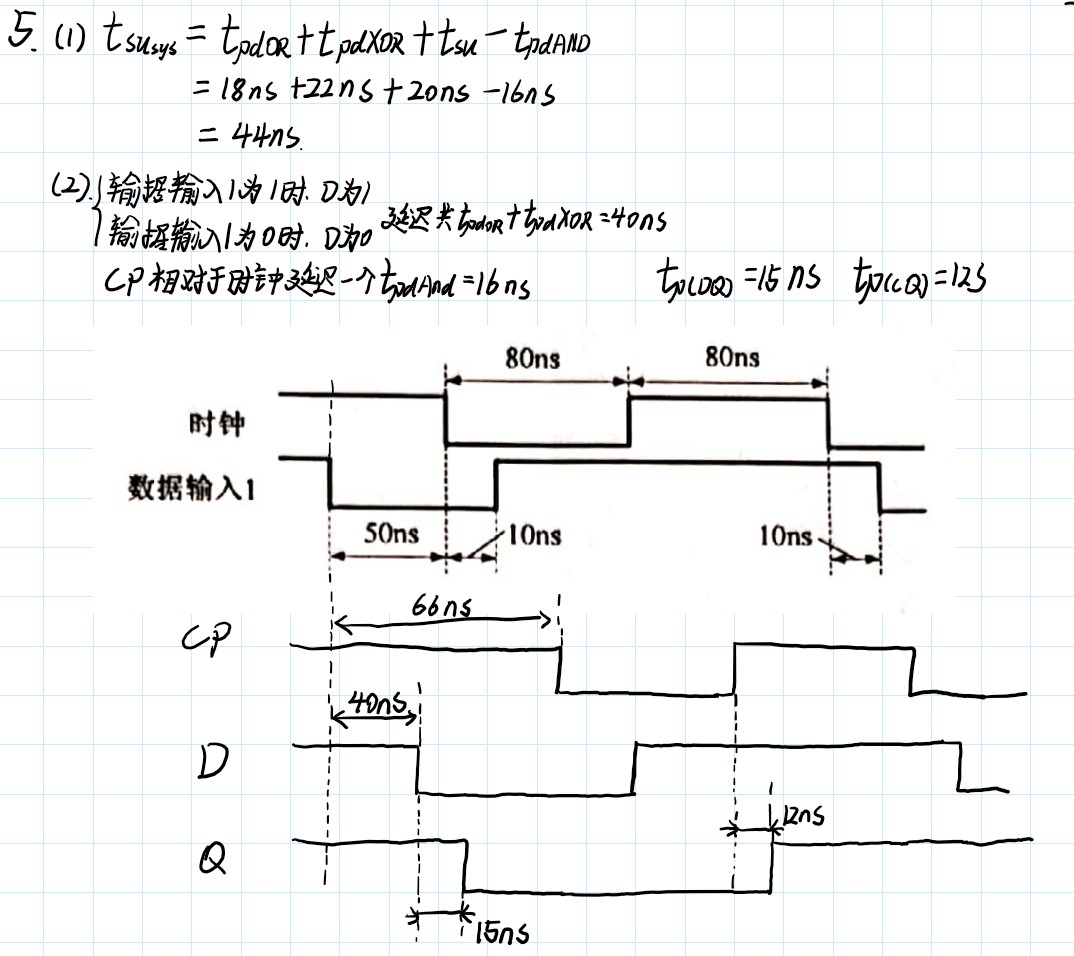 5. (1) tsusys = tpdOR + tpdXOR + tsu − tpdAND
= 18ns + 22ns + 20ns − 16ns
= 44ns.
(2). { 输据输入1为1时. D为1
输据输入1为0时. D为0 延迟共 tpdOR + tpdXOR = 40ns
CP相对于时钟延迟一个 tpdAnd = 16ns tp(DQ) = 15ns tp(CQ) = 12s
80ns 80ns
时钟
数据输入1
50ns 10ns 10ns
66ns
CP
40ns
D
12ns
Q
15ns